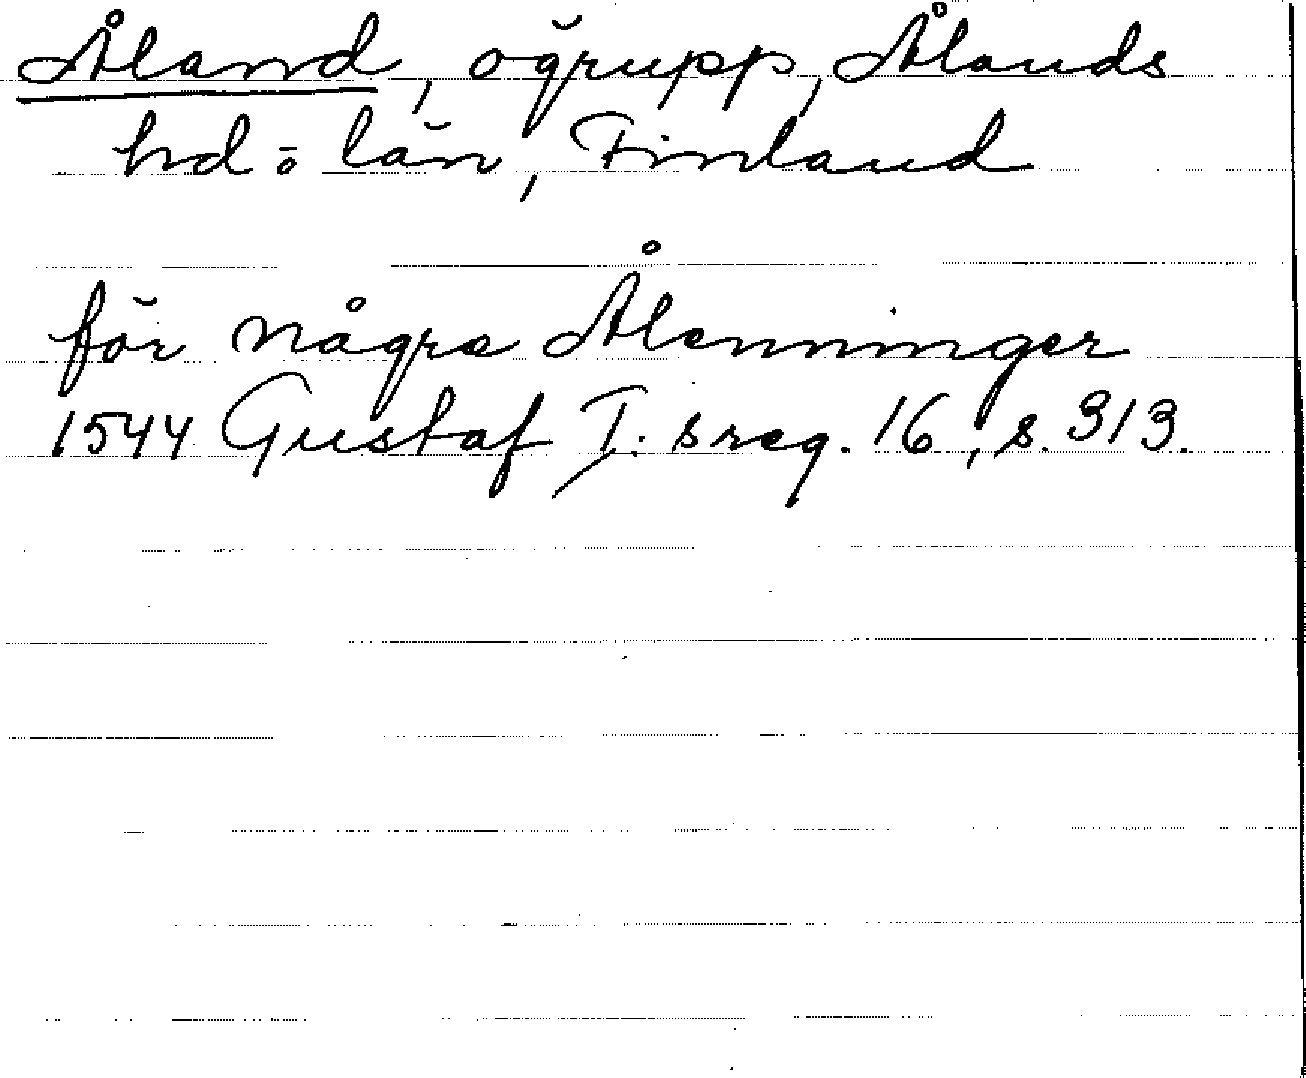 Åland, ögrupp, Ålands
hd o län, Finland
för någre Ålenninger
1544 Gustaf I: s reg. 16, s. 313.